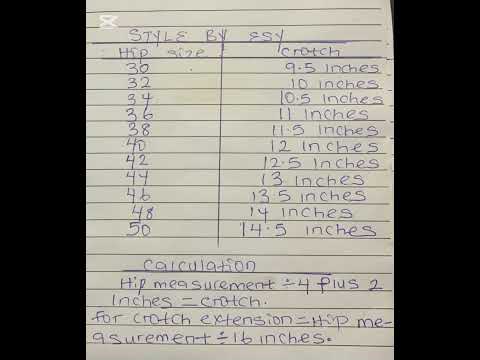 STYLE BY ESY
Hip size crotch
30 9.5 inches
32 10 inches
34 10.5 inches
36 11 inches
38 11.5 inches
40 12 inches
42 12.5 inches
44 13 inches
46 13.5 inches
48 14 inches
50 14.5 inches
calculation
Hip measurement ÷ 4 plus 2
inches = crotch.
for crotch extension = Hip me-
asurement ÷ 16 inches.